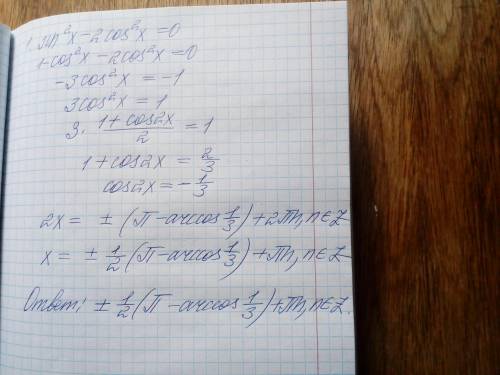 1. sin²x-2cos²x=0
1-cos²x-2cos²x=0
-3cos²x=-1
3cos²x=1
3·(1+cos2x)/2=1
1+cos2x=2/3
cos2x=-1/3
2x=±(π-arccos 1/3)+2πn, n∈Z
x=±1/2(π-arccos 1/3)+πn, n∈Z
Ответ: ±1/2(π-arccos 1/3)+πn, n∈Z.